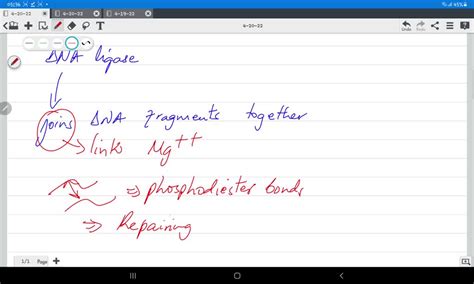 05:36
45%
4-20-22
4-20-22
4-19-22
4-20-22
Undo
Share
More
DNA ligase
joins DNA Fragments together
links Mg++
⇒ phosphodiester bonds
⇒ Repairing
1/1 Page